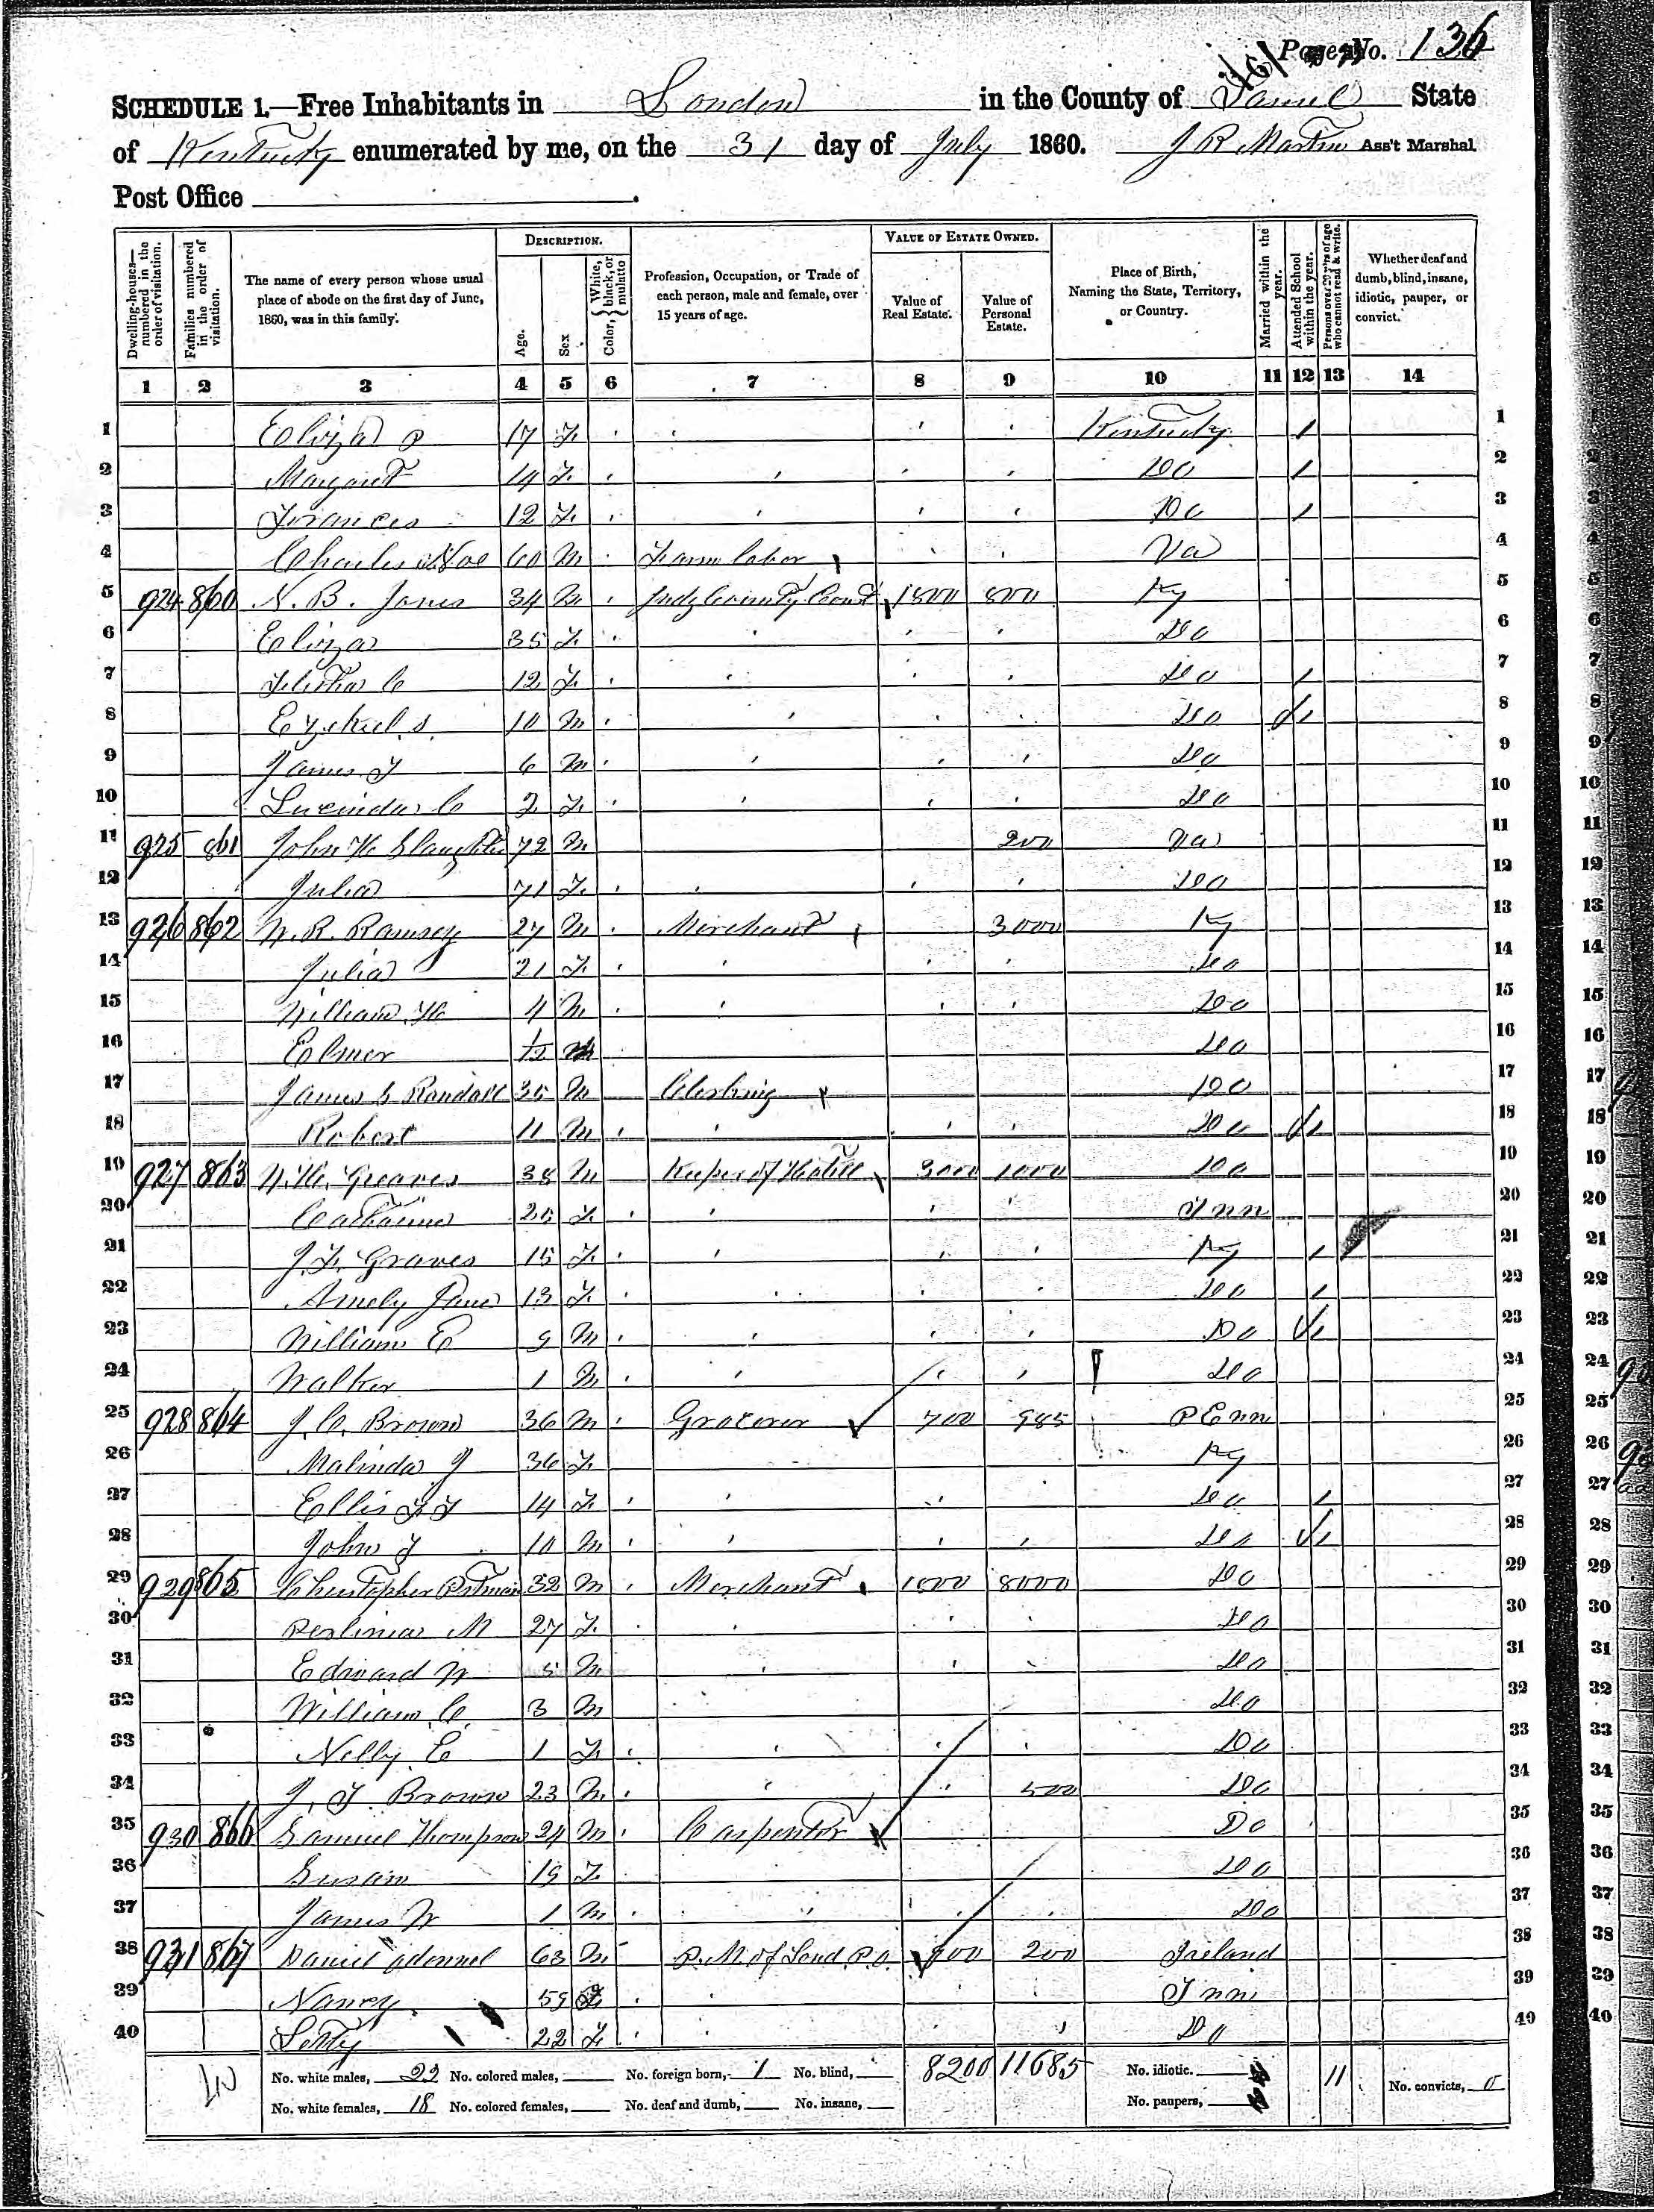 Page No. 136
SCHEDULE 1.—Free Inhabitants in London in the County of Laurel State
of Kentucky enumerated by me, on the 31 day of July 1860. J R Martin Ass't Marshal
Post Office
Dwelling-houses—numbered in the order of visitation. Families numbered in the order of visitation. The name of every person whose usual place of abode on the first day of June, 1860, was in this family. DESCRIPTION. Age. Sex Color, White, black, or mulatto Profession, Occupation, or Trade of each person, male and female, over 15 years of age. VALUE OF ESTATE OWNED. Value of Real Estate. Value of Personal Estate. Place of Birth, Naming the State, Territory, or Country. Married within the year. Attended School within the year. Persons over 20 y'rs of age who cannot read & write. Whether deaf and dumb, blind, insane, idiotic, pauper, or convict.
1 2 3 4 5 6 7 8 9 10 11 12 13 14
1 Eliza P 17 F Kentucky / 1
2 Margaret 14 F Do / 2
3 Frances 12 F Do / 3
4 Charles 60 M Farm labor Va 4
5 924 860 N. B. Jones 34 M Judg County Court 1800 800 Ky 5
6 Eliza 35 F Do 6
7 C 12 F Do / 7
8 Ezekiel S. 10 M Do / 8
9 James T 6 M Do 9
10 Lucinda C 2 F Do 10
11 925 861 John H Slaughter 72 M 200 Va 11
12 Julia 71 F Do 12
13 926 862 W. R. Ramsey 27 M Merchant 3000 Ky 13
14 Julia 21 F Do 14
15 William H 4 M Do 15
16 Elmer M Do 16
17 James S Randall 35 M Clerking Do 17
18 Robert 11 M Do / 18
19 927 863 W. H. Greaves 38 M Keeper of Hotell 3000 1000 Do 19
20 Catharine 25 F Tnn 20
21 J. F. Graves 15 F Ky / 21
22 Amely Jane 13 F Do / 22
23 William E 9 M Do / 23
24 Walker 1 M Do 24
25 928 864 J. C. Brown 36 M Grocerer 700 985 PEnn 25
26 Malinda J 36 F Ky 26
27 Ellis 14 F Do / 27
28 John T 10 M Do / 28
29 929 865 Christopher Pitman 32 M Merchant 1000 8000 Do 29
30 Perlinia M 27 F Do 30
31 Edward W 5 M Do 31
32 William C. 3 M Do 32
33 Nelly E 1 F Do 33
34 J. T. Brown 23 M 500 Do 34
35 930 866 Samuel Thompson 24 M Carpentor Do 35
36 Susan 19 F Do 36
37 James W 1 M Do 37
38 931 867 Daniel Odonnel 63 M P. M of Lond P. O. 200 Ireland 38
39 Nancy 59 F Tnn 39
40 Letty 22 F Do 40
No. white males, 22 No. colored males, No. foreign born, 1 No. blind, 8200 11685 No. idiotic. 11 No. convicts, 0
No. white females, 18 No. colored females, No. deaf and dumb, No. insane, No. paupers,